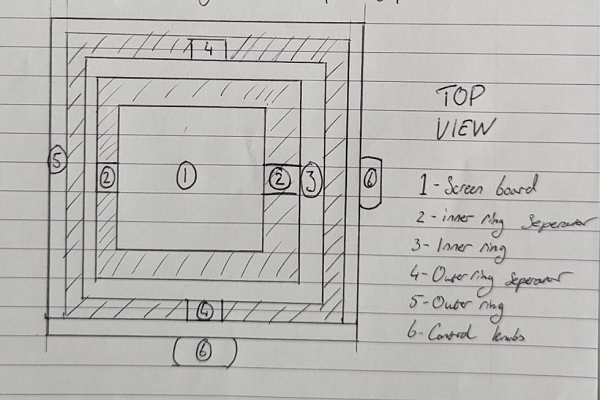 4
TOP
VIEW
5
2
1
2
3
6
1 - Screen board
2 - inner ring Seperator
3 - Inner ring
4 - Outer ring Seperator
5 - Outer ring
6 - Control knobs
4
6